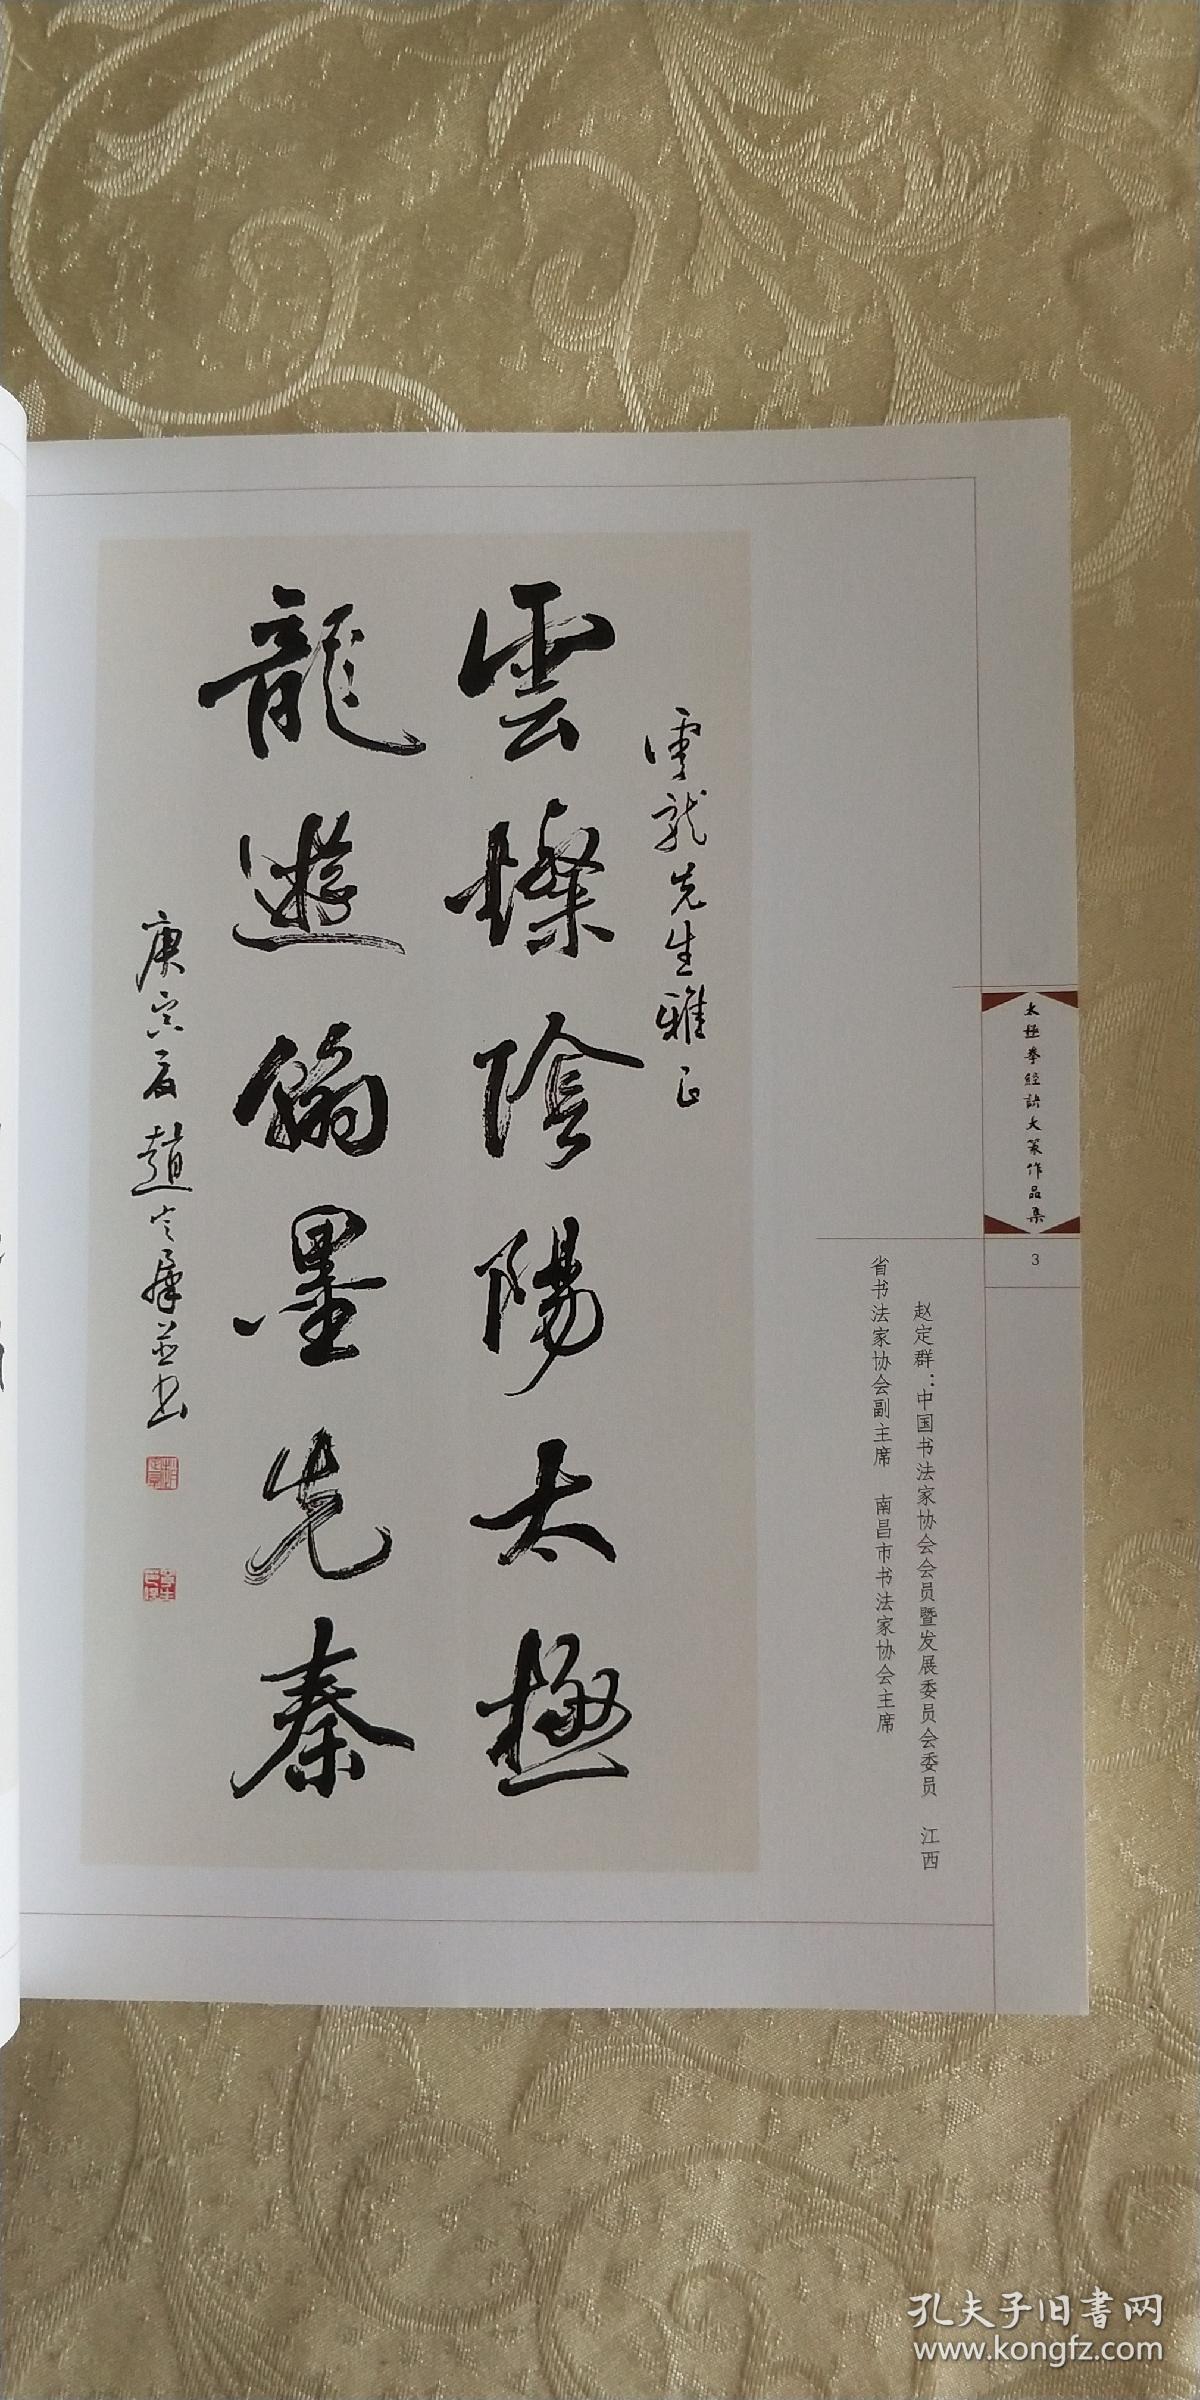 太極拳經訣大篆作品集
3
赵定群：中国书法家协会会员暨发展委员会委员　江西
省书法家协会副主席　南昌市书法家协会主席
雲龍先生雅正
雲燦陰陽太極
龍遊翰墨先秦
庚寅夏趙定群並书
孔夫子旧書网
www.kongfz.com